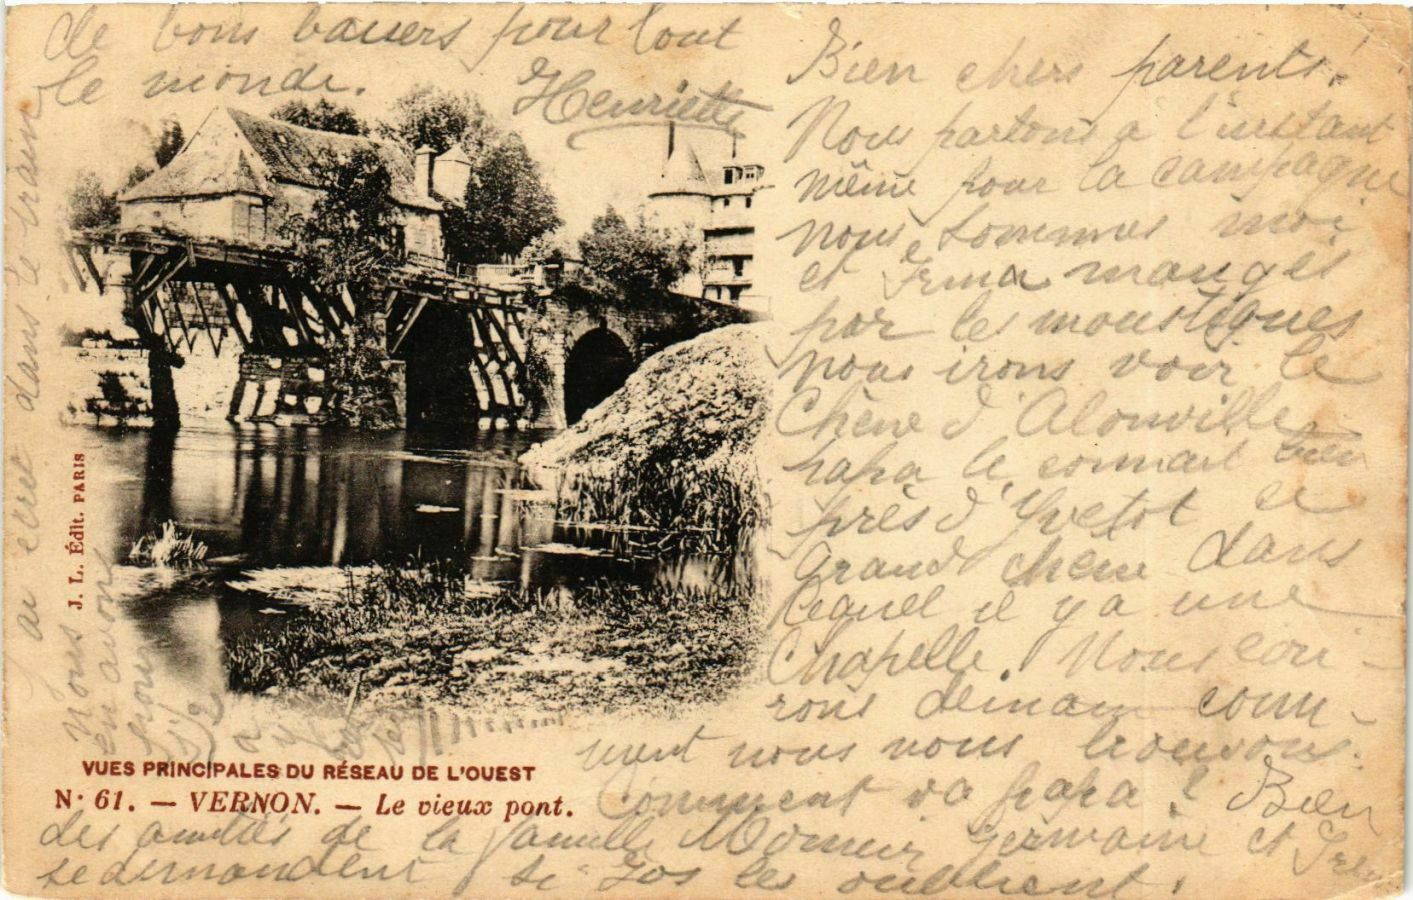 Bien chers parents!
Nous partons à l'instant
même pour la campagne
nous sommes moi
et Irma mangés
par les moustiques
nous irons voir le
Chêne d'Alonville
papa le connait bien
près d'Yvetot ce
grand chêne dans
lequel il y a une
Chapelle. Nous écri-
rons demain com-
ment nous nous trouvons.
Comment va papa? Bien
des amitiés de la famille Germaine et
se demandent si les oublient.
de bons baisers pour tout
le monde. Henriette
J'ai écrit dans le train
Nous
en avons
pour
J. L. Édit. PARIS
VUES PRINCIPALES DU RÉSEAU DE L'OUEST
N° 61. — VERNON. — Le vieux pont.